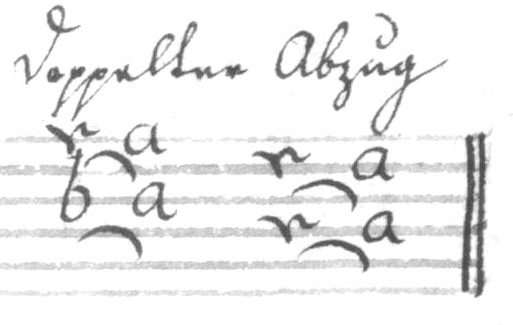 Doppelter Abzug
r a r a
b a r a